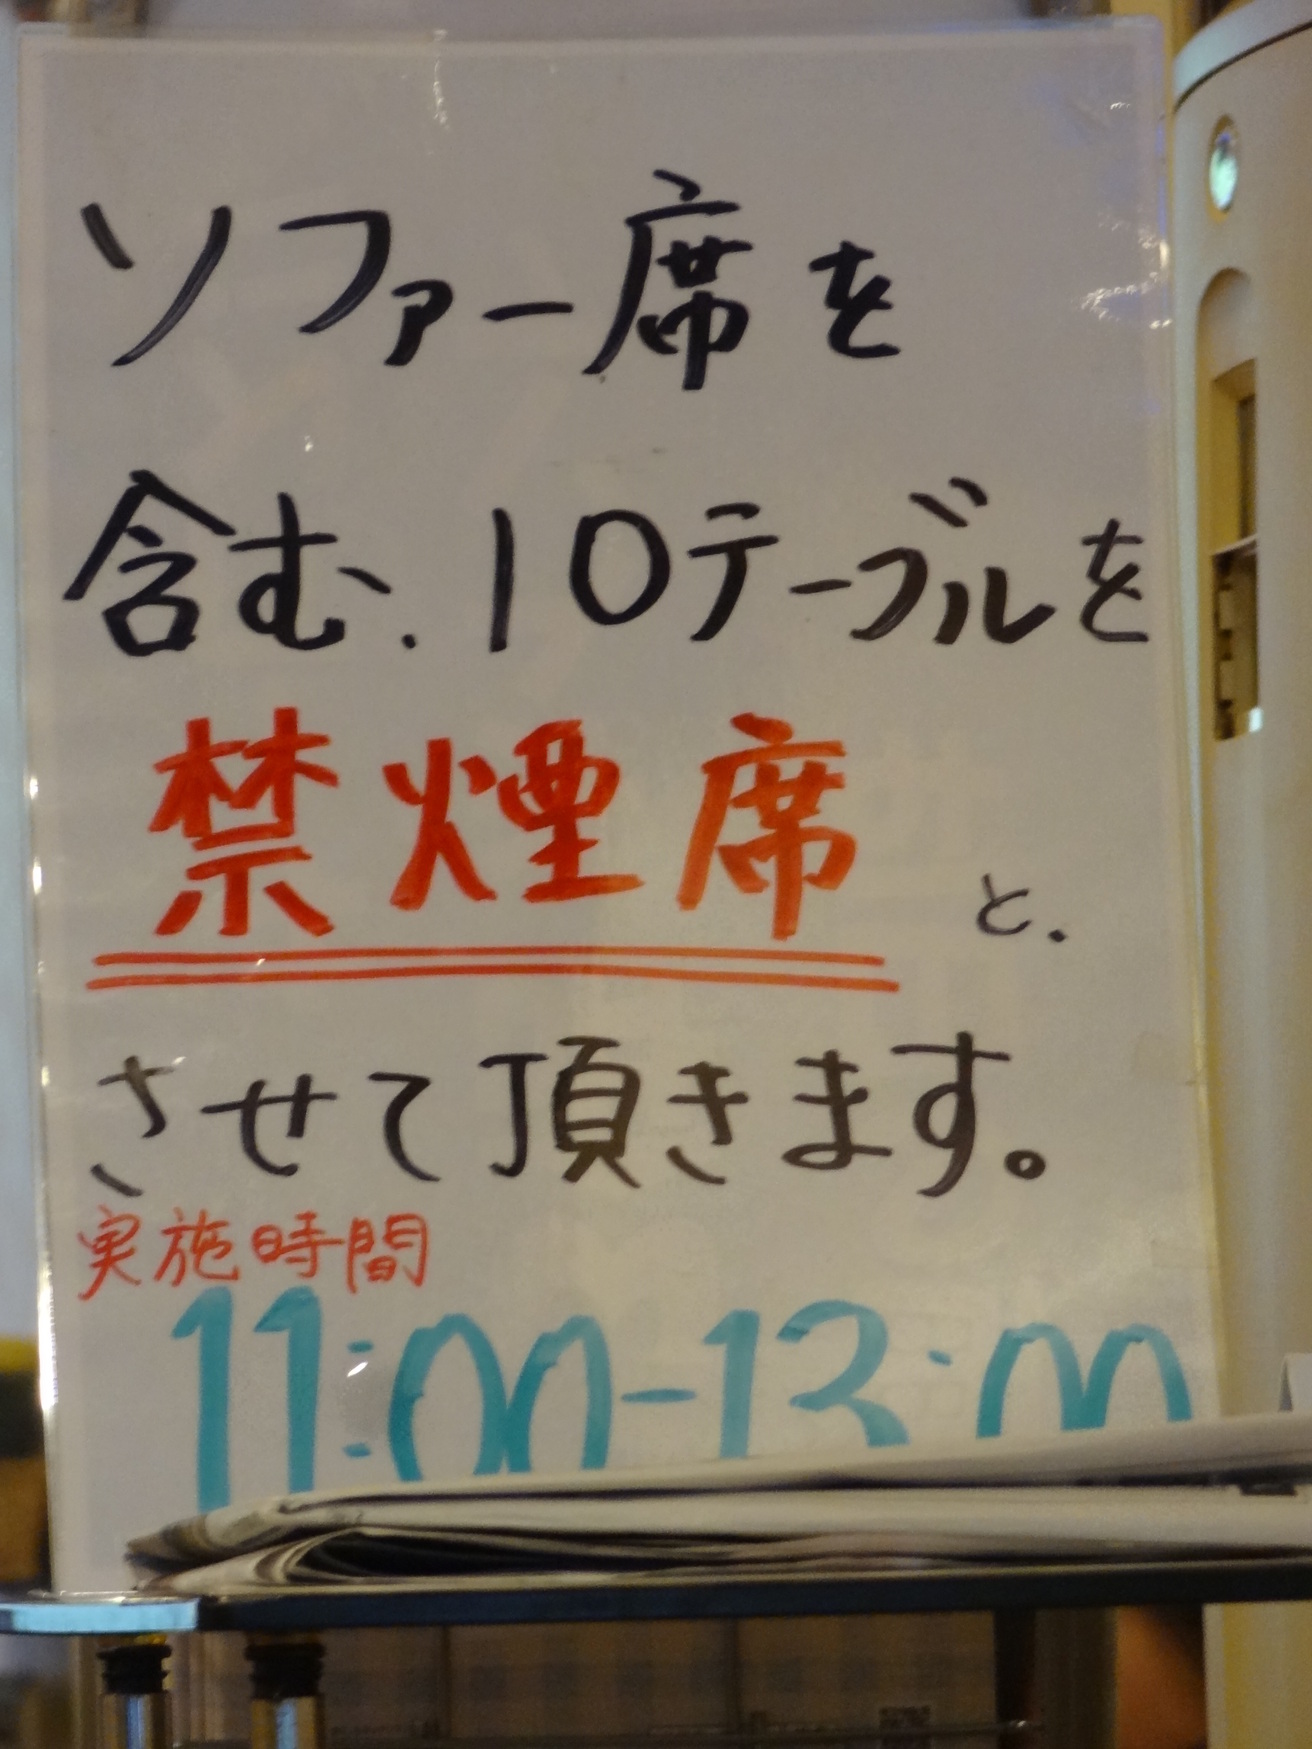 ソファー席を
含む、10テーブルを
禁煙席と、
させて頂きます。
実施時間
11:00-13:00